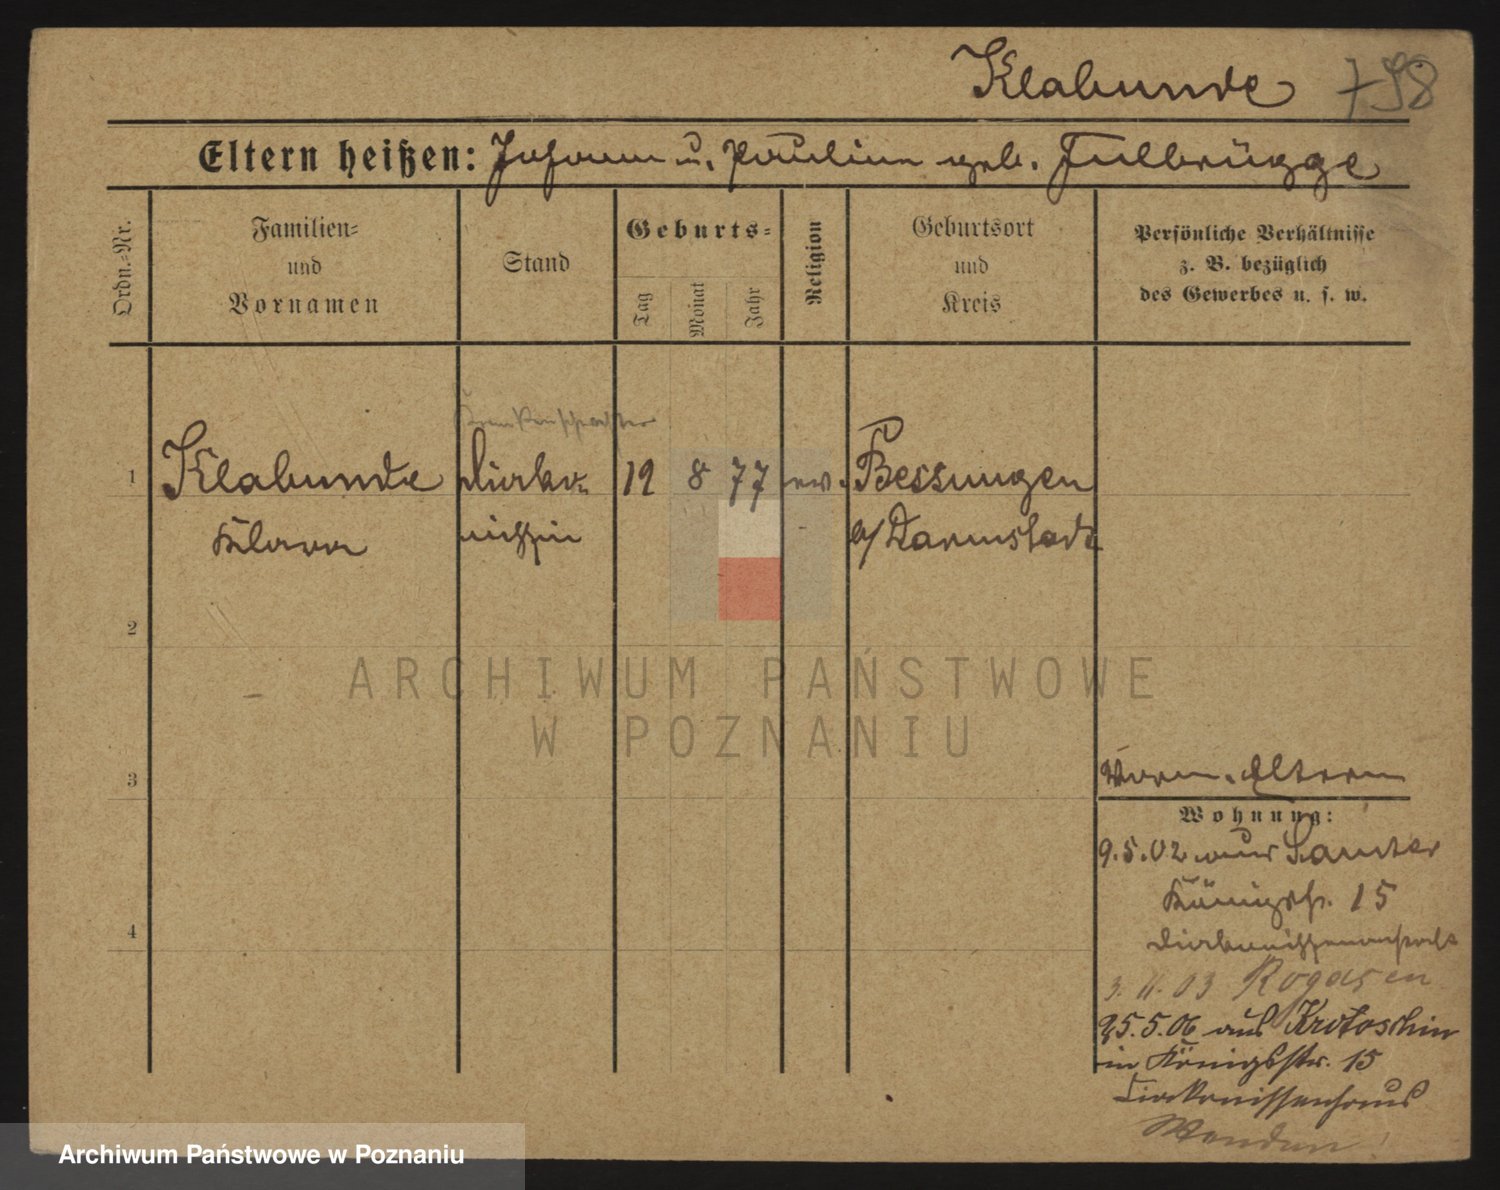 Klabunde 798
Eltern heißen: Johann u. Pauline geb. Fulbrügge
Ordn.-Nr.
Familien-
und
Vornamen
Stand
Geburts-
Tag
Monat
Jahr
Religion
Geburtsort
und
Kreis
Persönliche Verhältnisse
z. B. bezüglich
des Gewerbes u. s. w.
Krankenschwester
1 Klabunde Diako- 12 8 77 ev. Bessungen
Klara nissin b/Darmstadt
2
3
4
Verm. Eltern
Wohnung:
9.5.02 aus Samter
Königstr. 15
Diakonissenanstalt
3.11.03 Rogasen
25.5.06 aus Krotoschin
in Königsstr. 15
Diakonissenhaus
ARCHIWUM PAŃSTWOWE
W POZNANIU
Archiwum Państwowe w Poznaniu